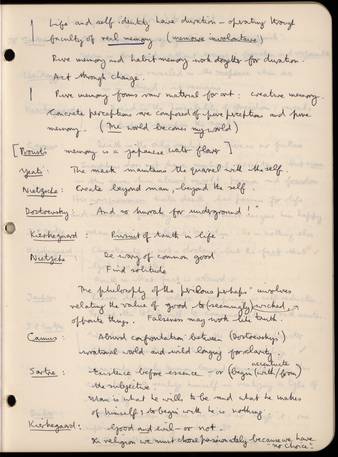 Life and self identity have duration - operating through
faculty of real memory. (memoire involontaire)
Pure memory and habit memory work together for duration.
Act through change.
Pure memory forms raw material for art. creative memory.
Concrete perceptions are composed of pure perceptions and pure
memory. (The world becomes my world)
[Proust: memory is a japanese water flower]
Yeats: The mask maintains the quarrel with the self.
Nietzche: Create beyond man, beyond the self.
Dostoevsky And so hurrah for underground!
Kierkegaard: Pursuit of truth in life.
Nietzche: Be wary of common good
Find solitude
The philosophy of the perilous perhaps - involves
relating the value of good to (seemingly) wicked,
opposite things. Falseness may work like truth.
Camus: Absurd confrontation between (Dostoevsky's)
irrational world and wild longing for clarity.
Sartre: Existence before essence - or (begin (with/from)
the subjective.
Man is what he will to be and what he makes
of himself; to begin with he is nothing.
Kierkegaard: Good and evil - or not.
In religion we must choose passionately because we have
"no choice".